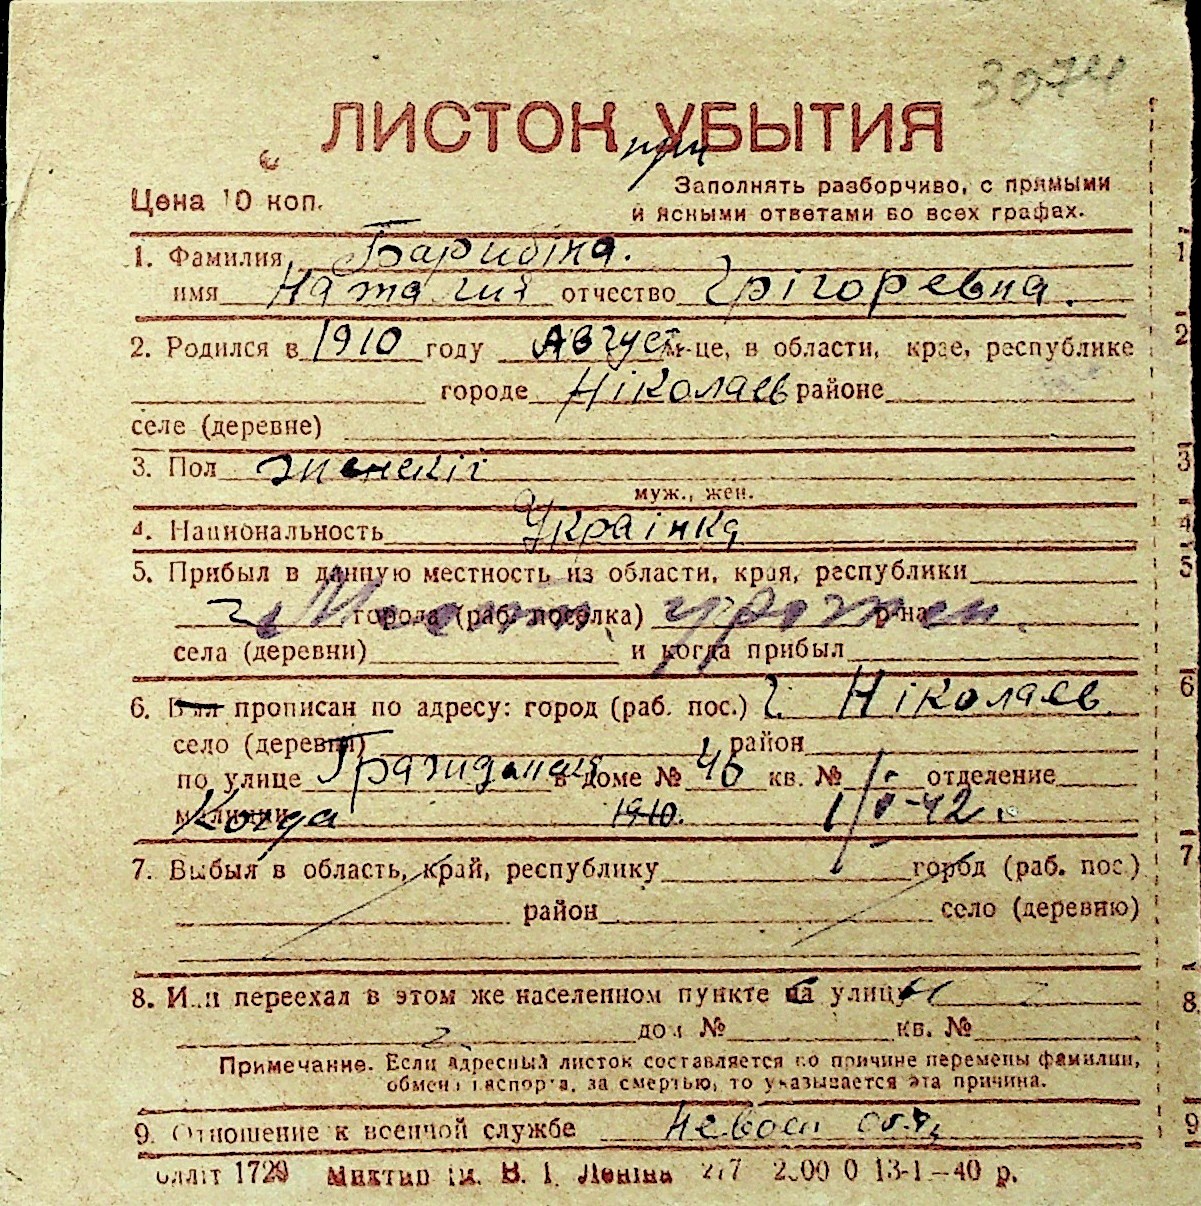 3074
ЛИСТОК УБЫТИЯ
при
Цена 10 коп.
Заполнять разборчиво, с прямыми
и ясными ответами во всех графах.
1. Фамилия Барибіна.
имя Наталия отчество Грігоревна.
2. Родился в 1910 году Август м-це, в области, крае, республике
городе Ніколаев районе
селе (деревне)
3. Пол женскій
муж., жен.
4. Национальность Украінка
5. Прибыл в данную местность из области, края, республики
города (раб. поселка) р-на
Местн урожен.
села (деревни) и когда прибыл
6. Был прописан по адресу: город (раб. пос.) г. Ніколаев
село (деревня) район
по улице Гражданская в доме № 46 кв. № отделение
милиции Когда 1910. 1/V-42.
7. Выбыл в область, край, республику город (раб. пос.)
район село (деревню)
8. Или переехал в этом же населенном пункте на улицу
дом № кв. №
Примечание. Если адресный листок составляется по причине перемены фамилии,
обмена паспорта, за смертью, то указывается эта причина.
9. Отношение к военной службе Невоен обяз
1729 ім. В. І. Леніна 13-1-40 р.
1
2
3
4
5
6
7
8
9